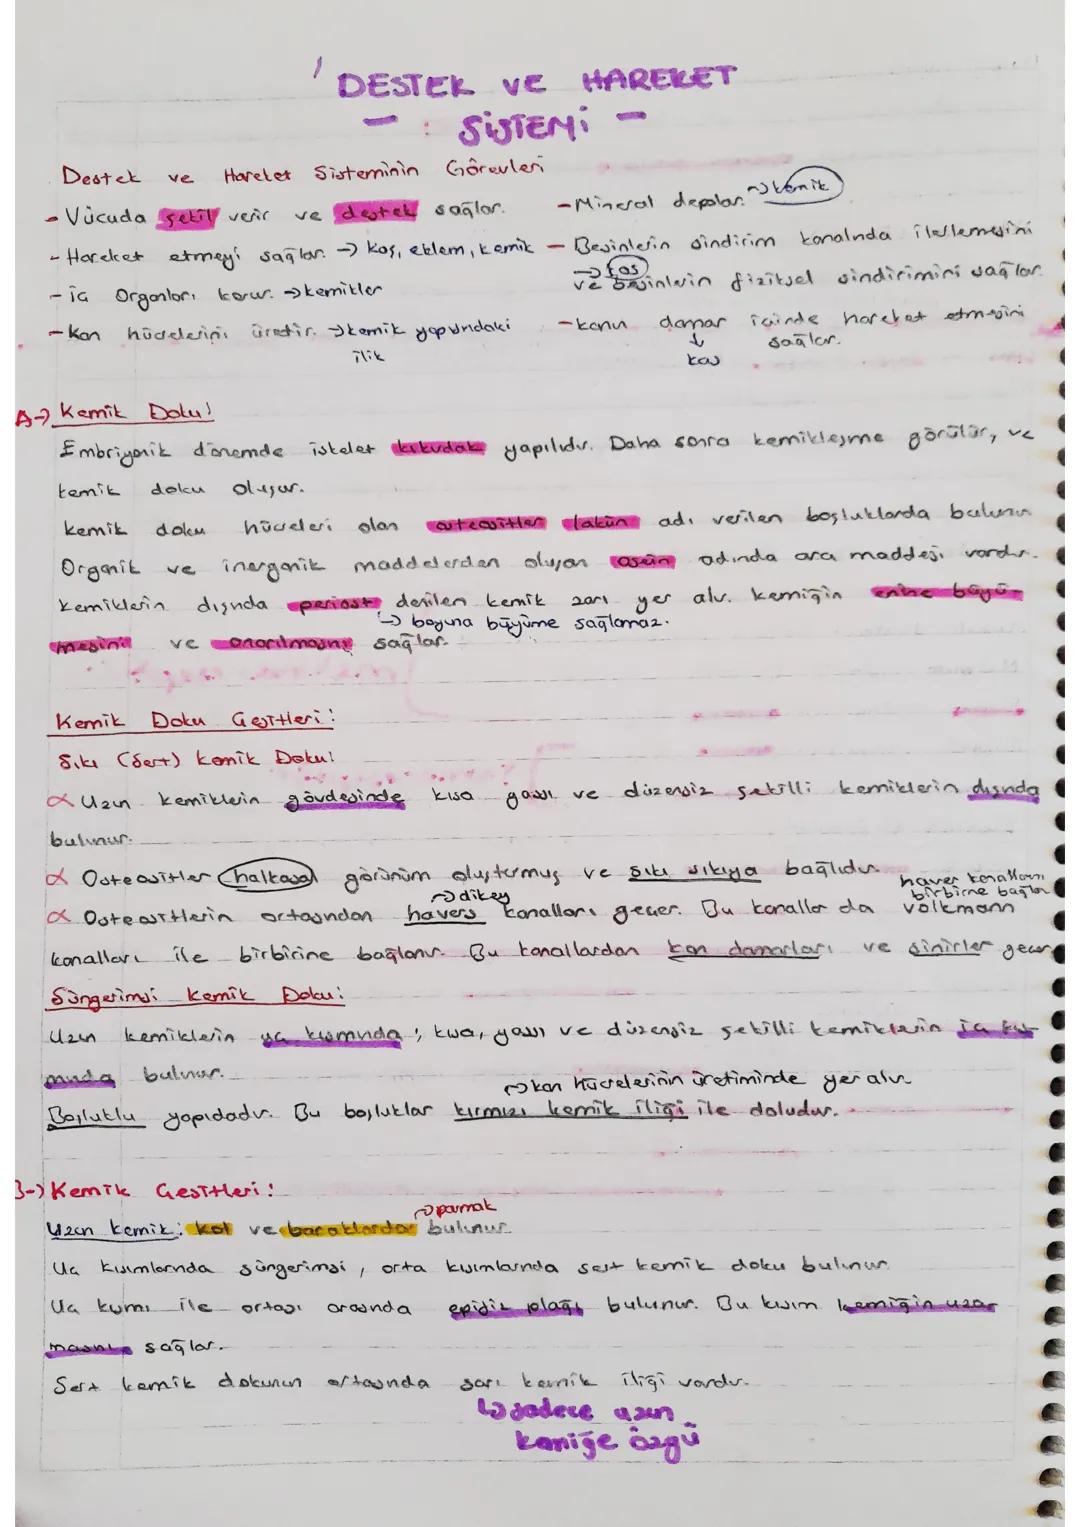 DESTEK VE HAREKET
- SİSTEMİ -
Destek ve Hareket Sisteminin Görevleri
- Vücuda şekil verir ve destek sağlar.
- Hareket etmeyi sağlar. → Kas, eklem, kemik
- iç Organları korur. → kemikler
- Kan hücrelerini üretir. → kemik yapısındaki
ilik
- Mineral depolar. → kemik
- Besinlerin sindirim kanalında ilerlemesini
→ kas
ve besinlerin fiziksel sindirimini sağlar.
- kanın damar içinde hareket etmesini
↓ sağlar.
kas
A-> Kemik Doku:
Embriyonik dönemde iskelet kıkırdak yapılıdır. Daha sonra kemikleşme görülür, ve
kemik doku oluşur.
kemik doku hücreleri olan osteositler lakün adı verilen boşluklarda bulunur.
Organik ve inorganik maddelerden oluşan osein adında ara maddesi vardır.
Kemiklerin dışında periost denilen kemik zarı yer alır. kemiğin enine büyü-
→ boyuna büyüme sağlamaz.
mesini ve onarılmasını sağlar.
Kemik Doku Çeşitleri:
Sıkı (Sert) kemik Doku:
α Uzun kemiklerin gövdesinde kısa yassı ve düzensiz şekilli kemiklerin dışında
bulunur.
α Osteositler halkasal görünüm oluşturmuş ve sıkı sıkıya bağlıdır.
→ dikey
havers kanallarını
birbirine bağlar
α Osteositlerin ortasından havers kanalları geçer. Bu kanallar da volkmann
kanalları ile birbirine bağlanır. Bu kanallardan kan damarları ve sinirler geçer.
Süngerimsi Kemik Doku:
Uzun kemiklerin uç kısmında; kısa, yassı ve düzensiz şekilli kemiklerin iç kıs-
mında bulunur.
→ kan hücrelerinin üretiminde yer alır
Boşluklu yapıdadır. Bu boşluklar kırmızı kemik iliği ile doludur.
B-) Kemik Çeşitleri:
→ parmak
Uzun kemik: kol ve bacaklarda bulunur.
Uç kısımlarında süngerimsi, orta kısımlarında sert kemik doku bulunur.
Uç kısmı ile ortası arasında epifiz plağı bulunur. Bu kısım kemiğin uza-
masını sağlar.
Sert kemik dokunun ortasında sarı kemik iliği vardır.
↳ sadece uzun
kemiğe özgü